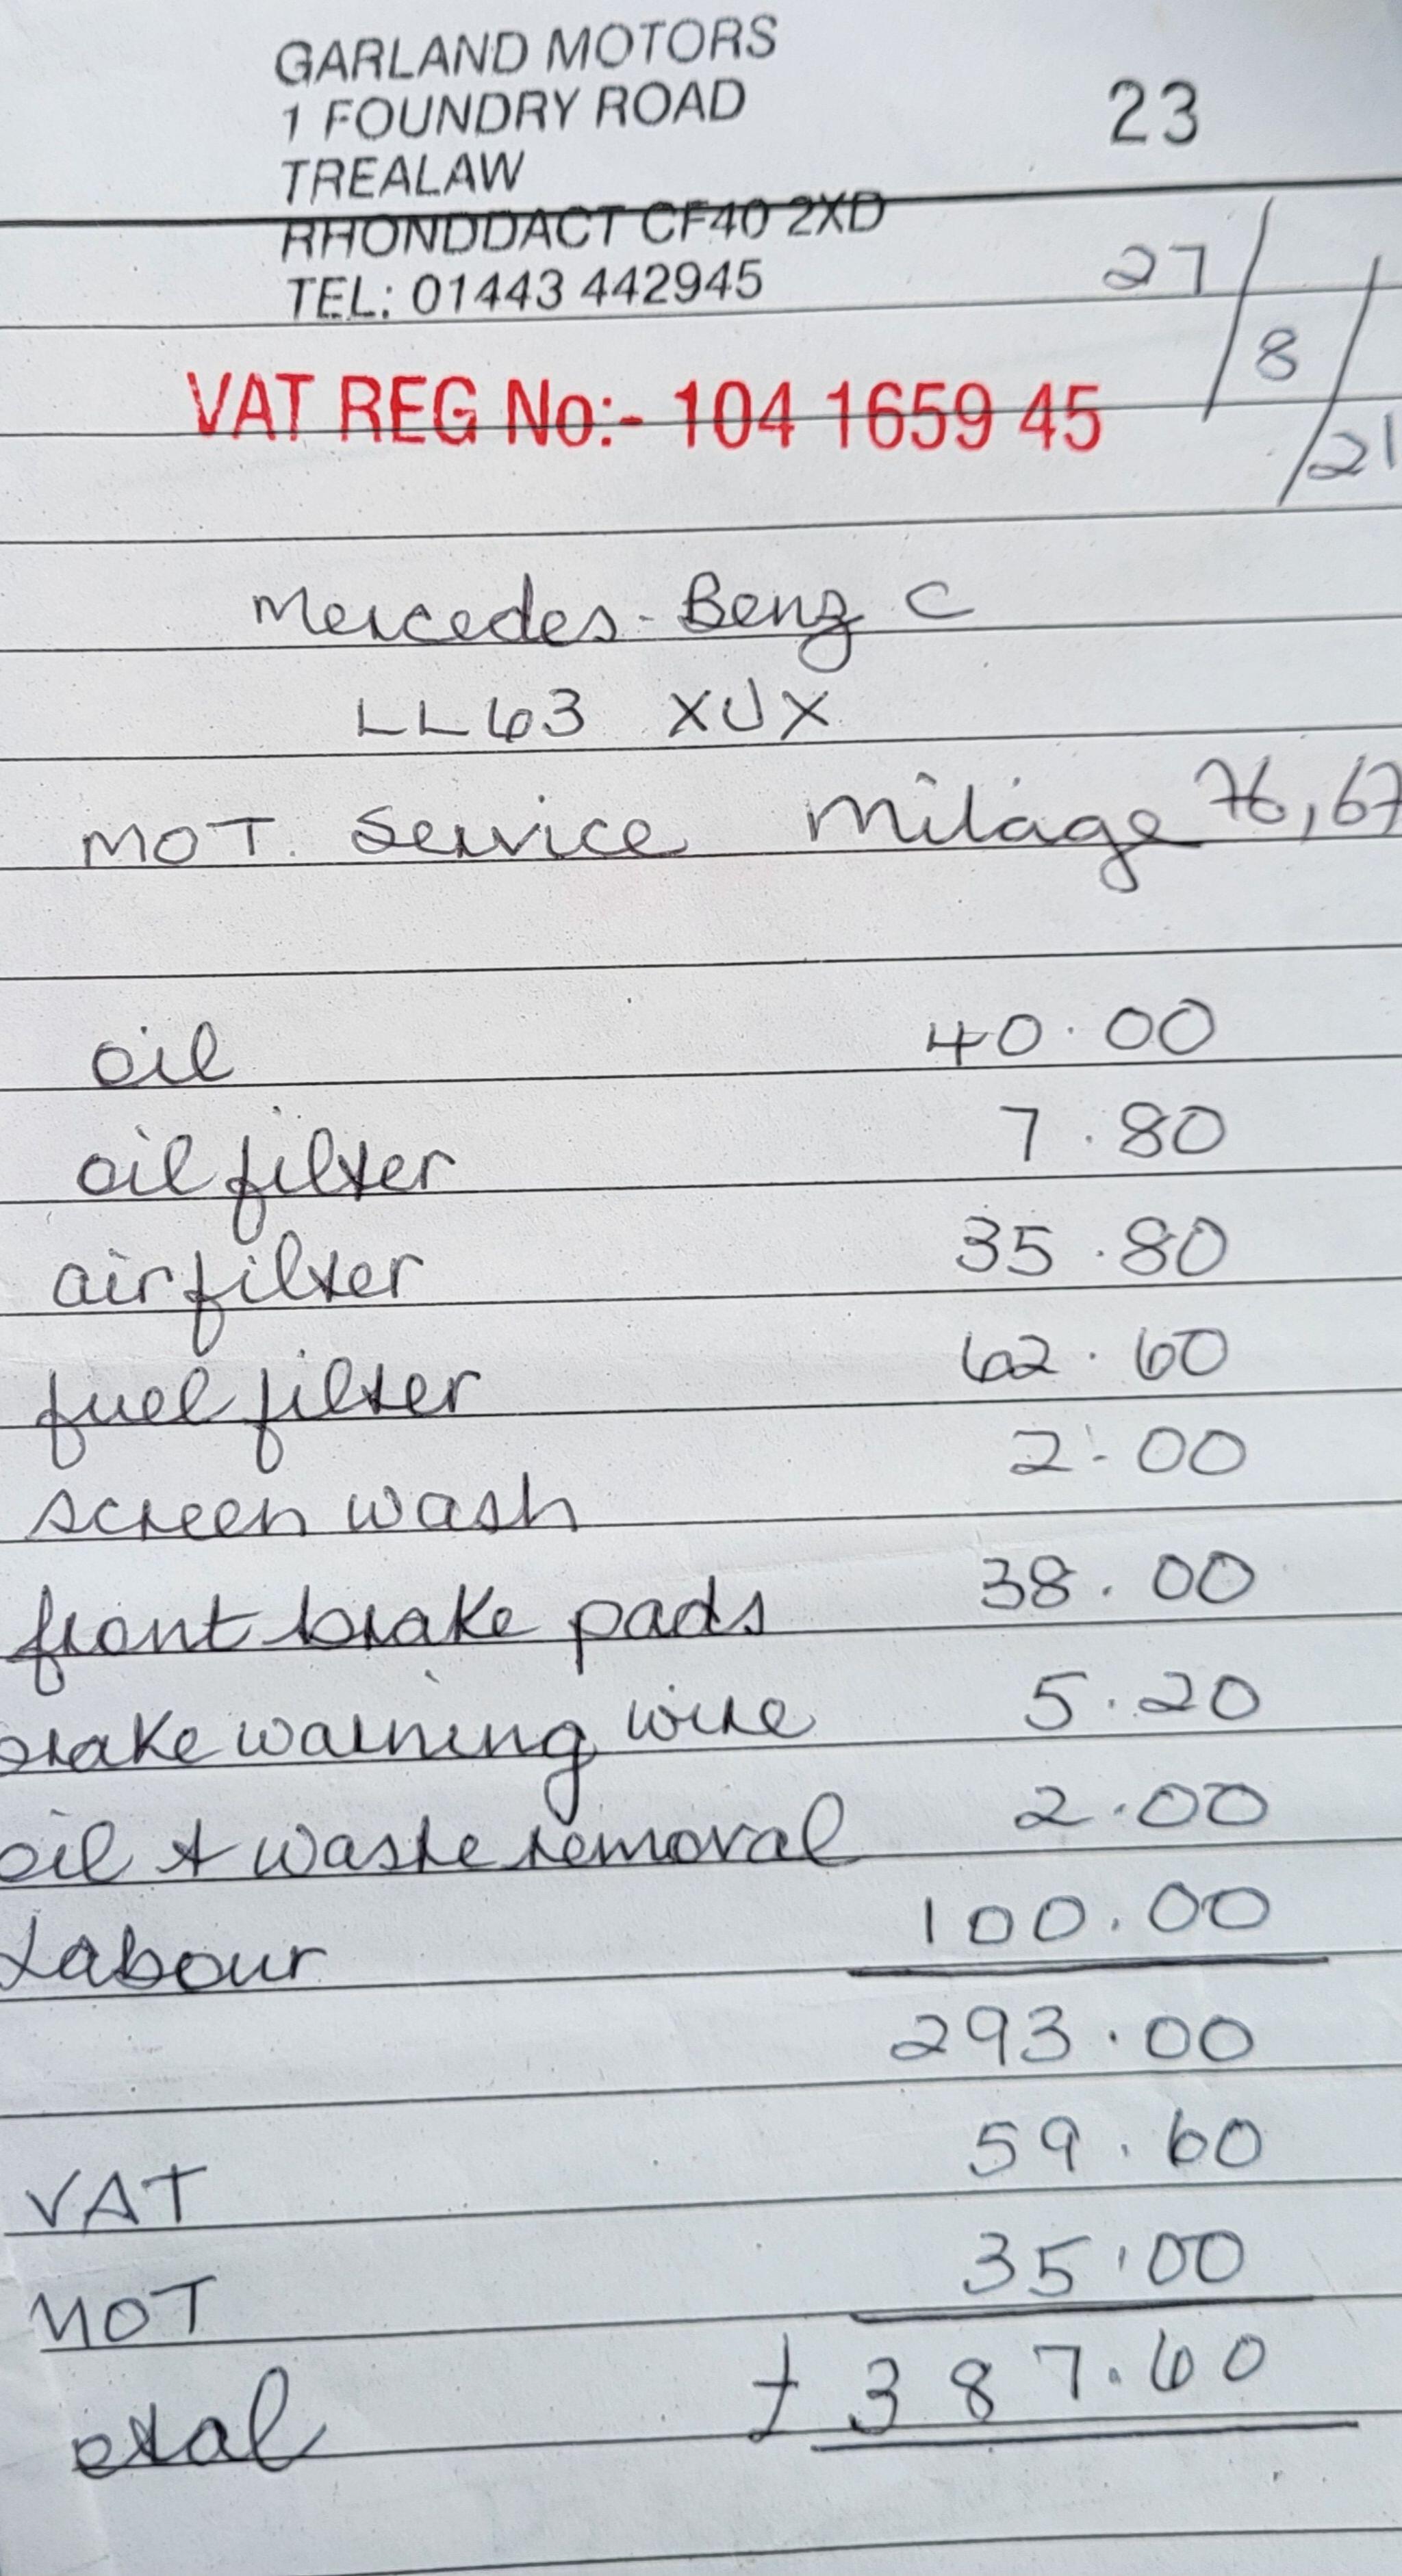 GARLAND MOTORS
1 FOUNDRY ROAD
23
TREALAW
RHONDDACT CF40 2XD
TEL: 01443 442945
27/8/21
VAT REG No:- 104 1659 45
Mercedes-Benz C
LL63 XUX
MOT. Service Milage 76,67
oil 40.00
oil filter 7.80
air filter 35.80
fuel filter 62.60
screen wash 2.00
front brake pads 38.00
brake warning wire 5.20
oil & waste removal 2.00
Labour 100.00
293.00
VAT 59.60
MOT 35.00
otal £387.60